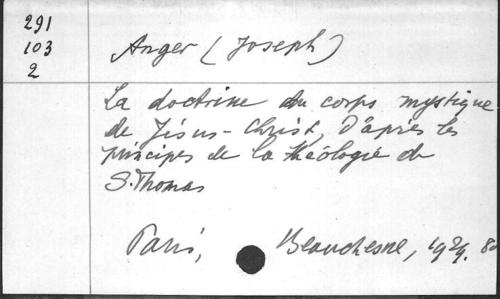 291
103
2
Anger (Joseph)
La doctrine du corps mystique
de Jésus-Christ, d'après les
principes de la théologie de
S. Thomas
Paris, Beauchesne, 1929. 8o